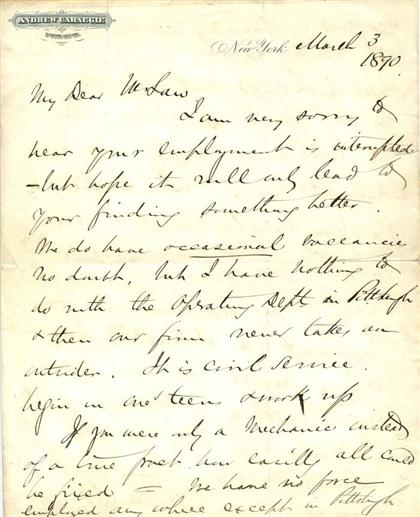 ANDREW CARNEGIE
New York March 3
1890.
My Dear Mr Law
I am very sorry to
hear your employment is interrupted
- but hope it will only lead to
your finding something better.
We do have occasional vacancies
no doubt, but I have nothing to
do with the Operating Dept in Pittsburgh
& then our firm never takes an
outsider. It is civil service.
begin in one's teens & work up
If you were only a Mechanic instead
of a true poet how easily all could
be fixed = We have no force
employed any where except in Pittsburgh